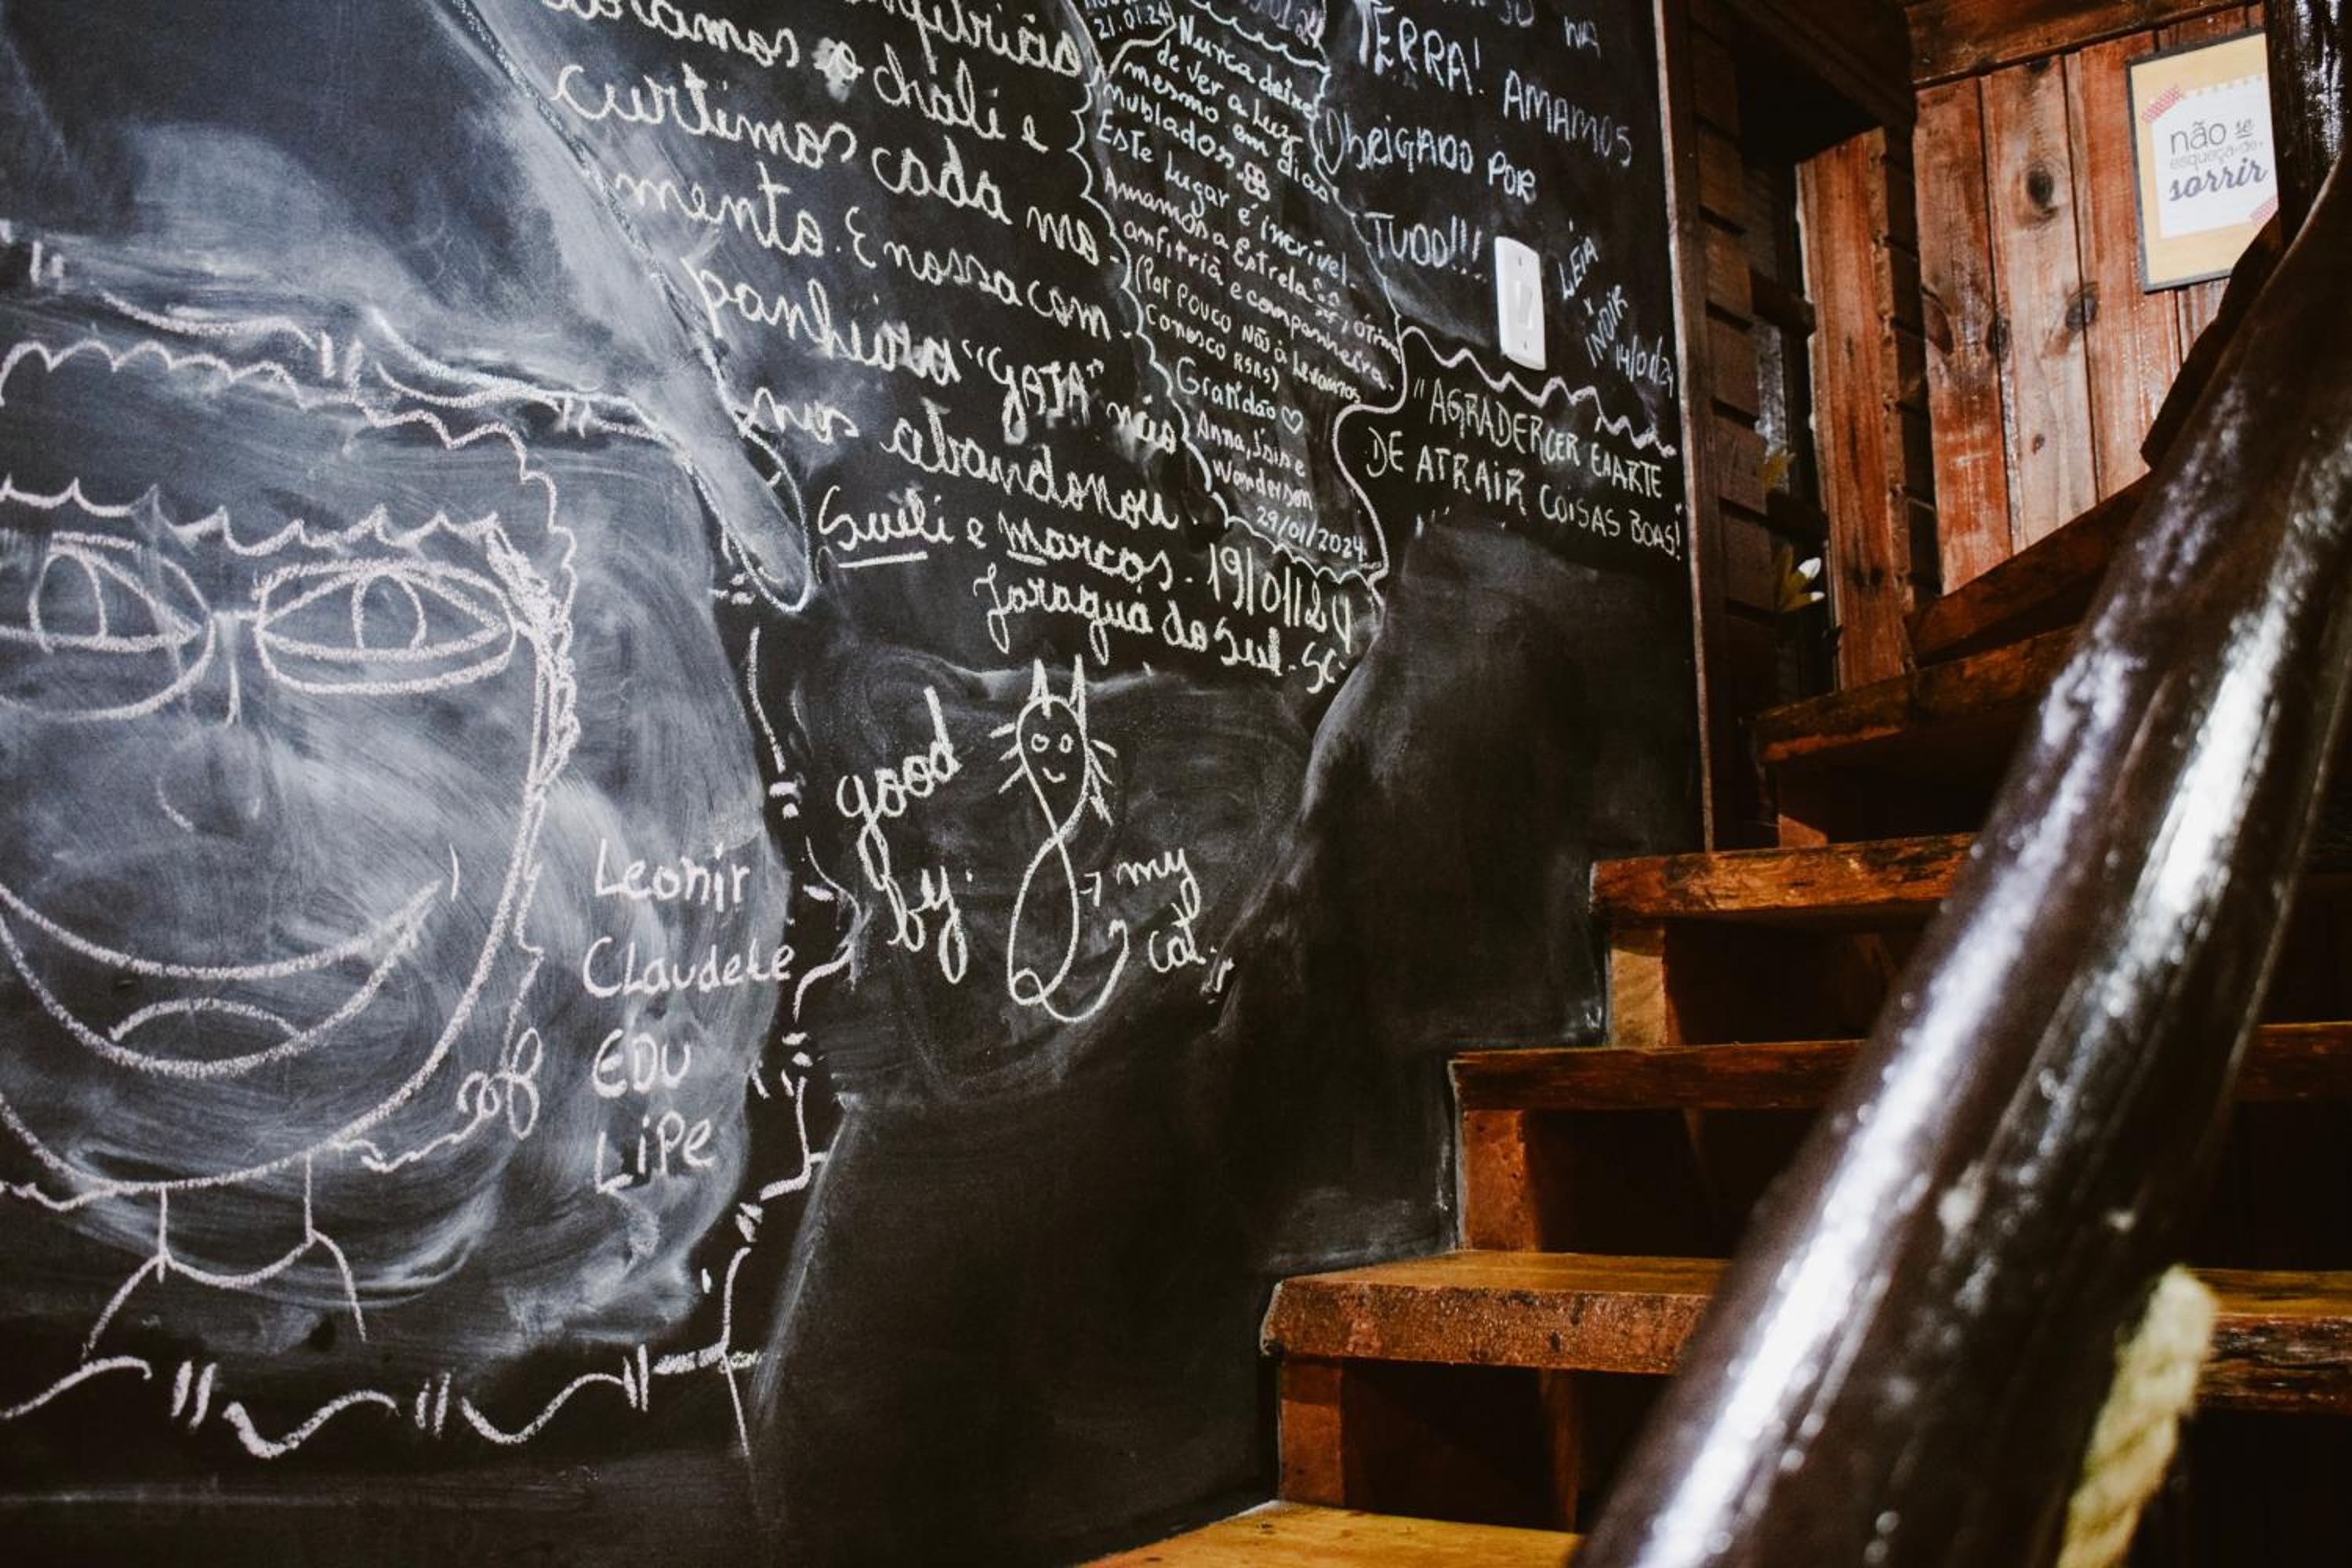 anfitriãs
amamos o chalé e
curtimos cada mo-
mento. E nossa com-
panheira "GATA" não
nos abandonou.
Suéli e Marcos. 19/01/24
Jaraguá do Sul-SC
21.01.24
Nunca deixe
de ver a Luz
mesmo em dias
nublados.
Este Lugar é incrível.
Amamos a Estrela
anfitriã e companheira.
, ótima
(Por pouco não à levamos
conosco rsrs)
Gratidão ♡
Anna, Isis e
Wanderson
29/01/2024.
NA
TERRA! AMAMOS
ObRIGADO POR
TUDO!!!
LEIA
INOIR
14/01/24
"AGRADERCER É A ARTE
DE ATRAIR COISAS BOAS!
good
by.
→ my
cat.
Leonir
Claudete
EDU
LiPe
não se
esqueça de
sorrir